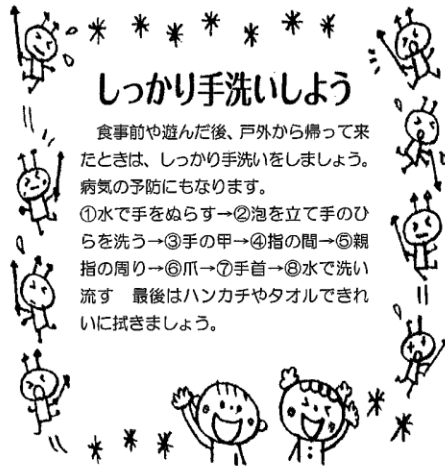 しっかり手洗いしよう
　食事前や遊んだ後、戸外から帰って来
たときは、しっかり手洗いをしましょう。
病気の予防にもなります。
①水で手をぬらす→②泡を立て手のひ
らを洗う→③手の甲→④指の間→⑤親
指の周り→⑥爪→⑦手首→⑧水で洗い
流す　最後はハンカチやタオルできれ
いに拭きましょう。